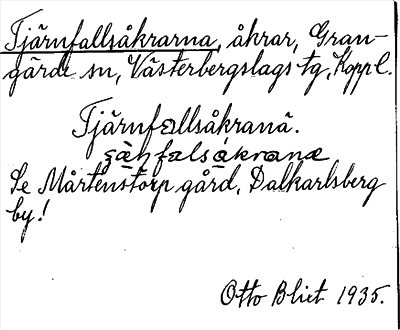 Tjärnfallsåkrarna, åkrar, Gran-
gärde sn, Västerbergslags tg, Kopp l.
Tjärnfallsåkranä.
Se Mårtenstorp gård, Dalkarlsberg
by!
Otto Blixt 1935.